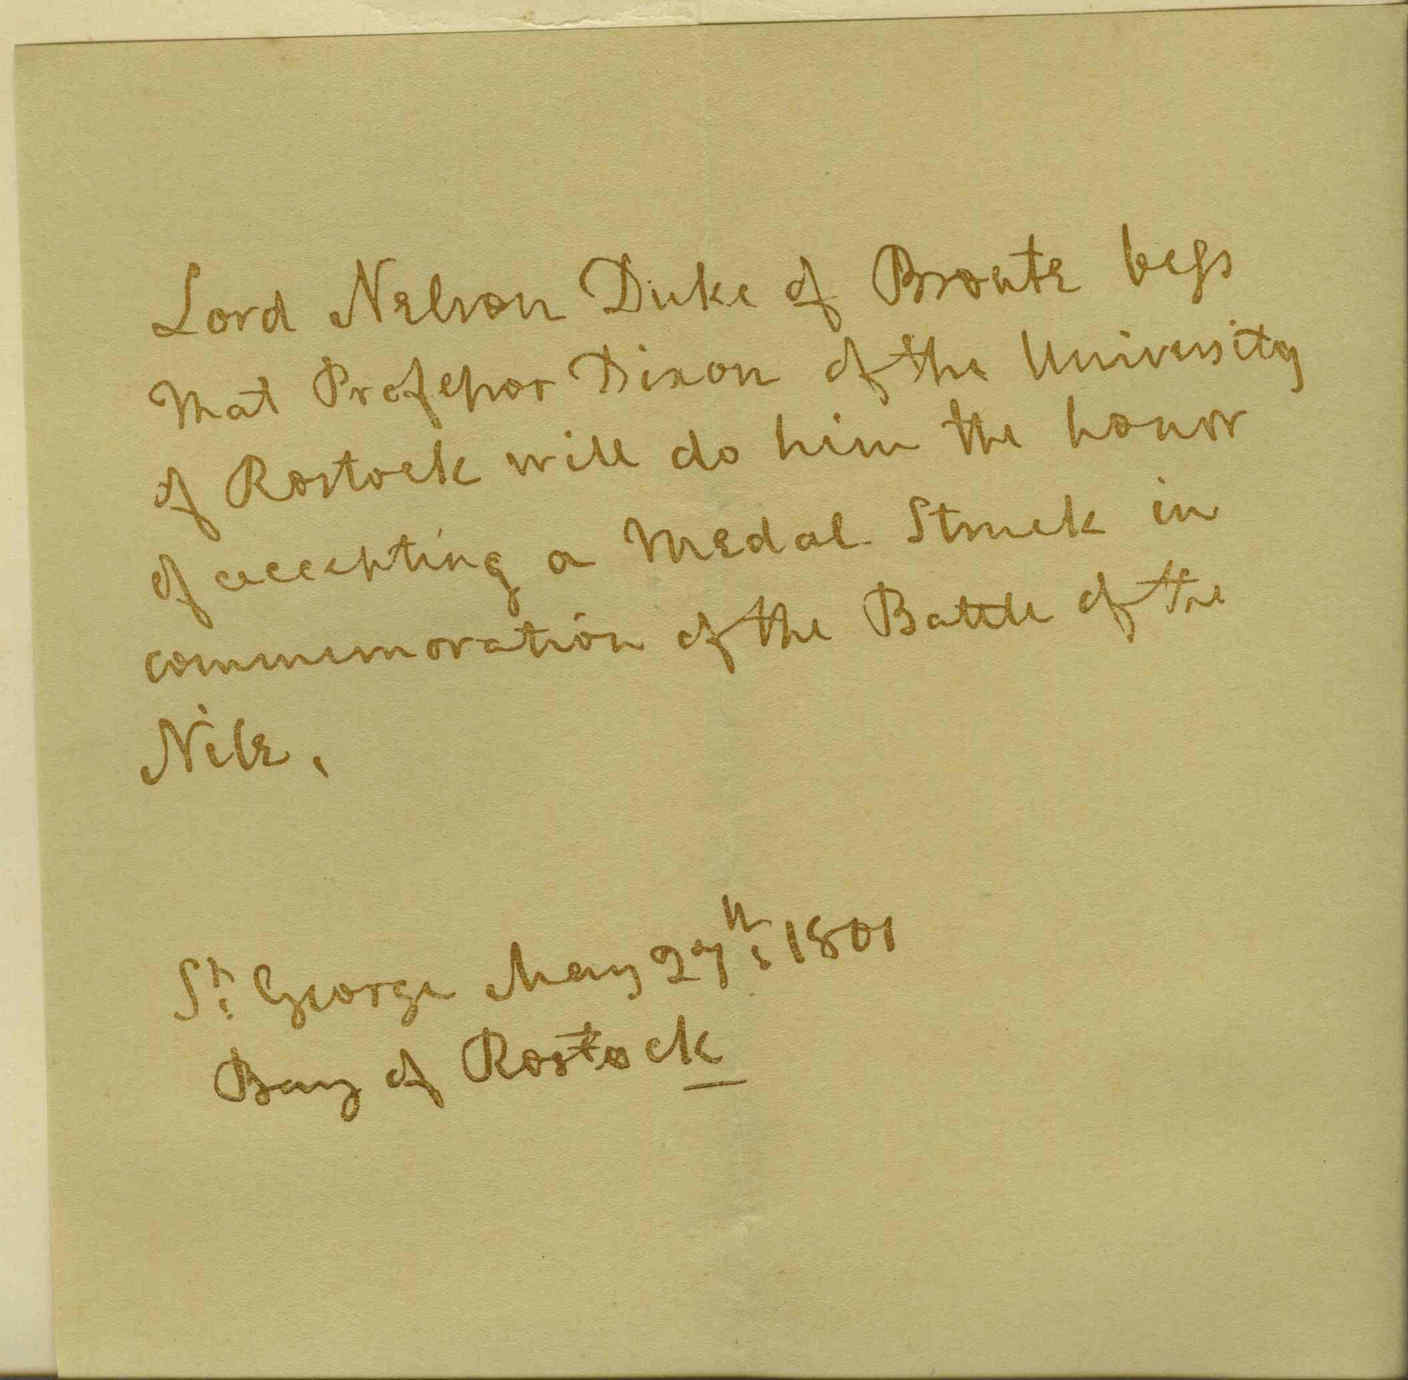 Lord Nelson Duke of Bronte begs
that Professor Dixon of the University
of Rostock will do him the honor
of accepting a Medal Struck in
commemoration of the Battle of the
Nile,
St. George May 27th: 1801
Bay of Rostock